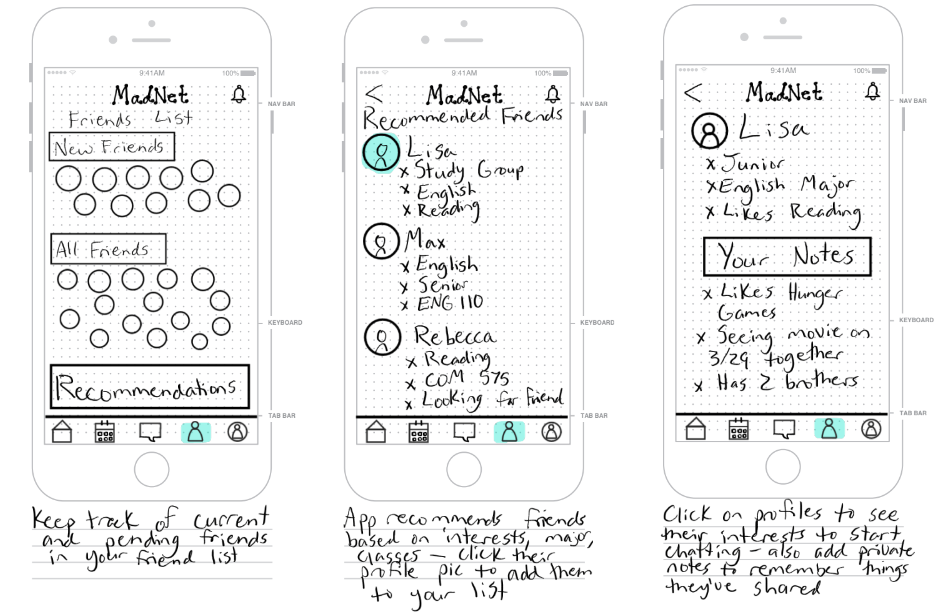 9:41AM
100%
MadNet
NAV BAR
Friends List
New Friends
All Friends
KEYBOARD
Recommendations
TAB BAR
Keep track of current
and pending friends
in your friend list
9:41AM
100%
MadNet
NAV BAR
Recommended Friends
Lisa
x Study Group
x English
x Reading
Max
x English
x Senior
x ENG 110
KEYBOARD
Rebecca
x Reading
x COM 575
x Looking for Friend
TAB BAR
App recommends friends
based on interests, major,
classes – click their
profile pic to add them
to your list
9:41AM
100%
MadNet
NAV BAR
Lisa
x Junior
x English Major
x Likes Reading
Your Notes
x Likes Hunger
Games
KEYBOARD
x Seeing movie on
3/29 together
x Has 2 brothers
TAB BAR
Click on profiles to see
their interests to start
chatting – also add private
notes to remember things
they've shared